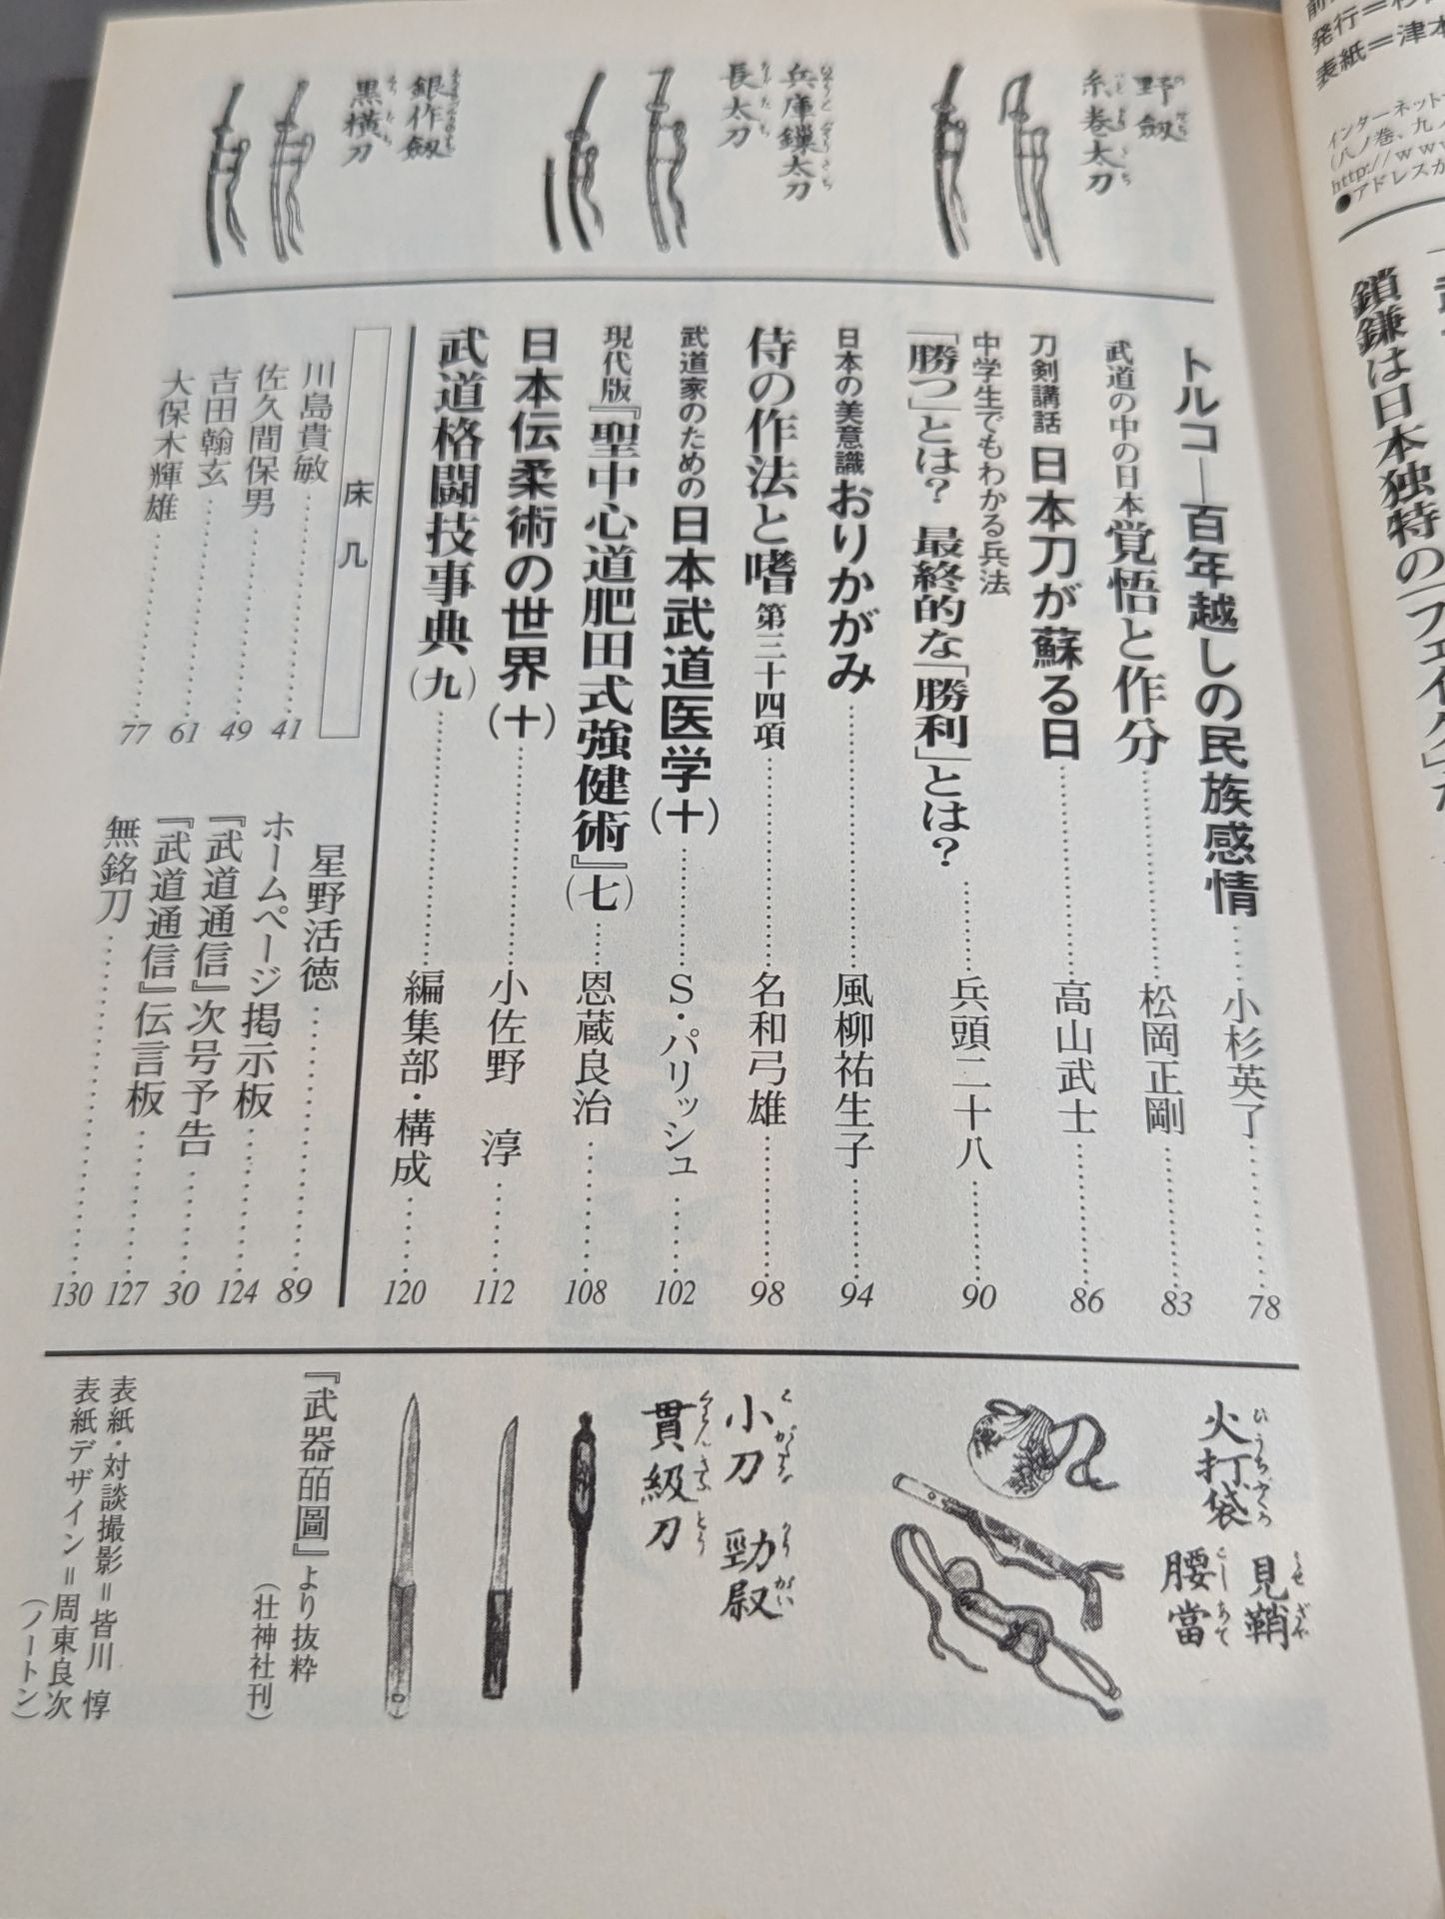 野劔
糸巻太刀
兵庫鏁太刀
長太刀
銀作劔
黒横刀
トルコ―百年越しの民族感情……小杉英了……78
武道の中の日本 覚悟と作分……松岡正剛……83
刀剣講話 日本刀が蘇る日……高山武士……86
中学生でもわかる兵法
「勝つ」とは？ 最終的な「勝利」とは？……兵頭二十八……90
日本の美意識 おりかがみ……風柳祐生子……94
侍の作法と嗜 第三十四項……名和弓雄……98
武道家のための日本武道医学(十)……S・パリッシュ……102
現代版『聖中心道肥田式強健術』(七)……恩蔵良治……108
日本伝柔術の世界(十)……小佐野 淳……112
武道格闘技事典(九)……編集部・構成……120
床几
川島貴敏……41
佐久間保男……49
吉田翰玄……61
大保木輝雄……77
星野活徳……89
ホームページ掲示板……124
『武道通信』次号予告……30
『武道通信』伝言板……127
無銘刀……130
火打袋
見鞘
腰當
小刀 勁刷
貫級刀
『武器皕圖』より抜粋
(壮神社刊)
表紙・対談撮影＝皆川 惇
表紙デザイン＝周東良次
(ノートン)
発行＝
表紙＝津本
インターネット
(八ノ巻、九ノ
http://ww
●アドレスが
鎖鎌は日本独特の「フェイク」